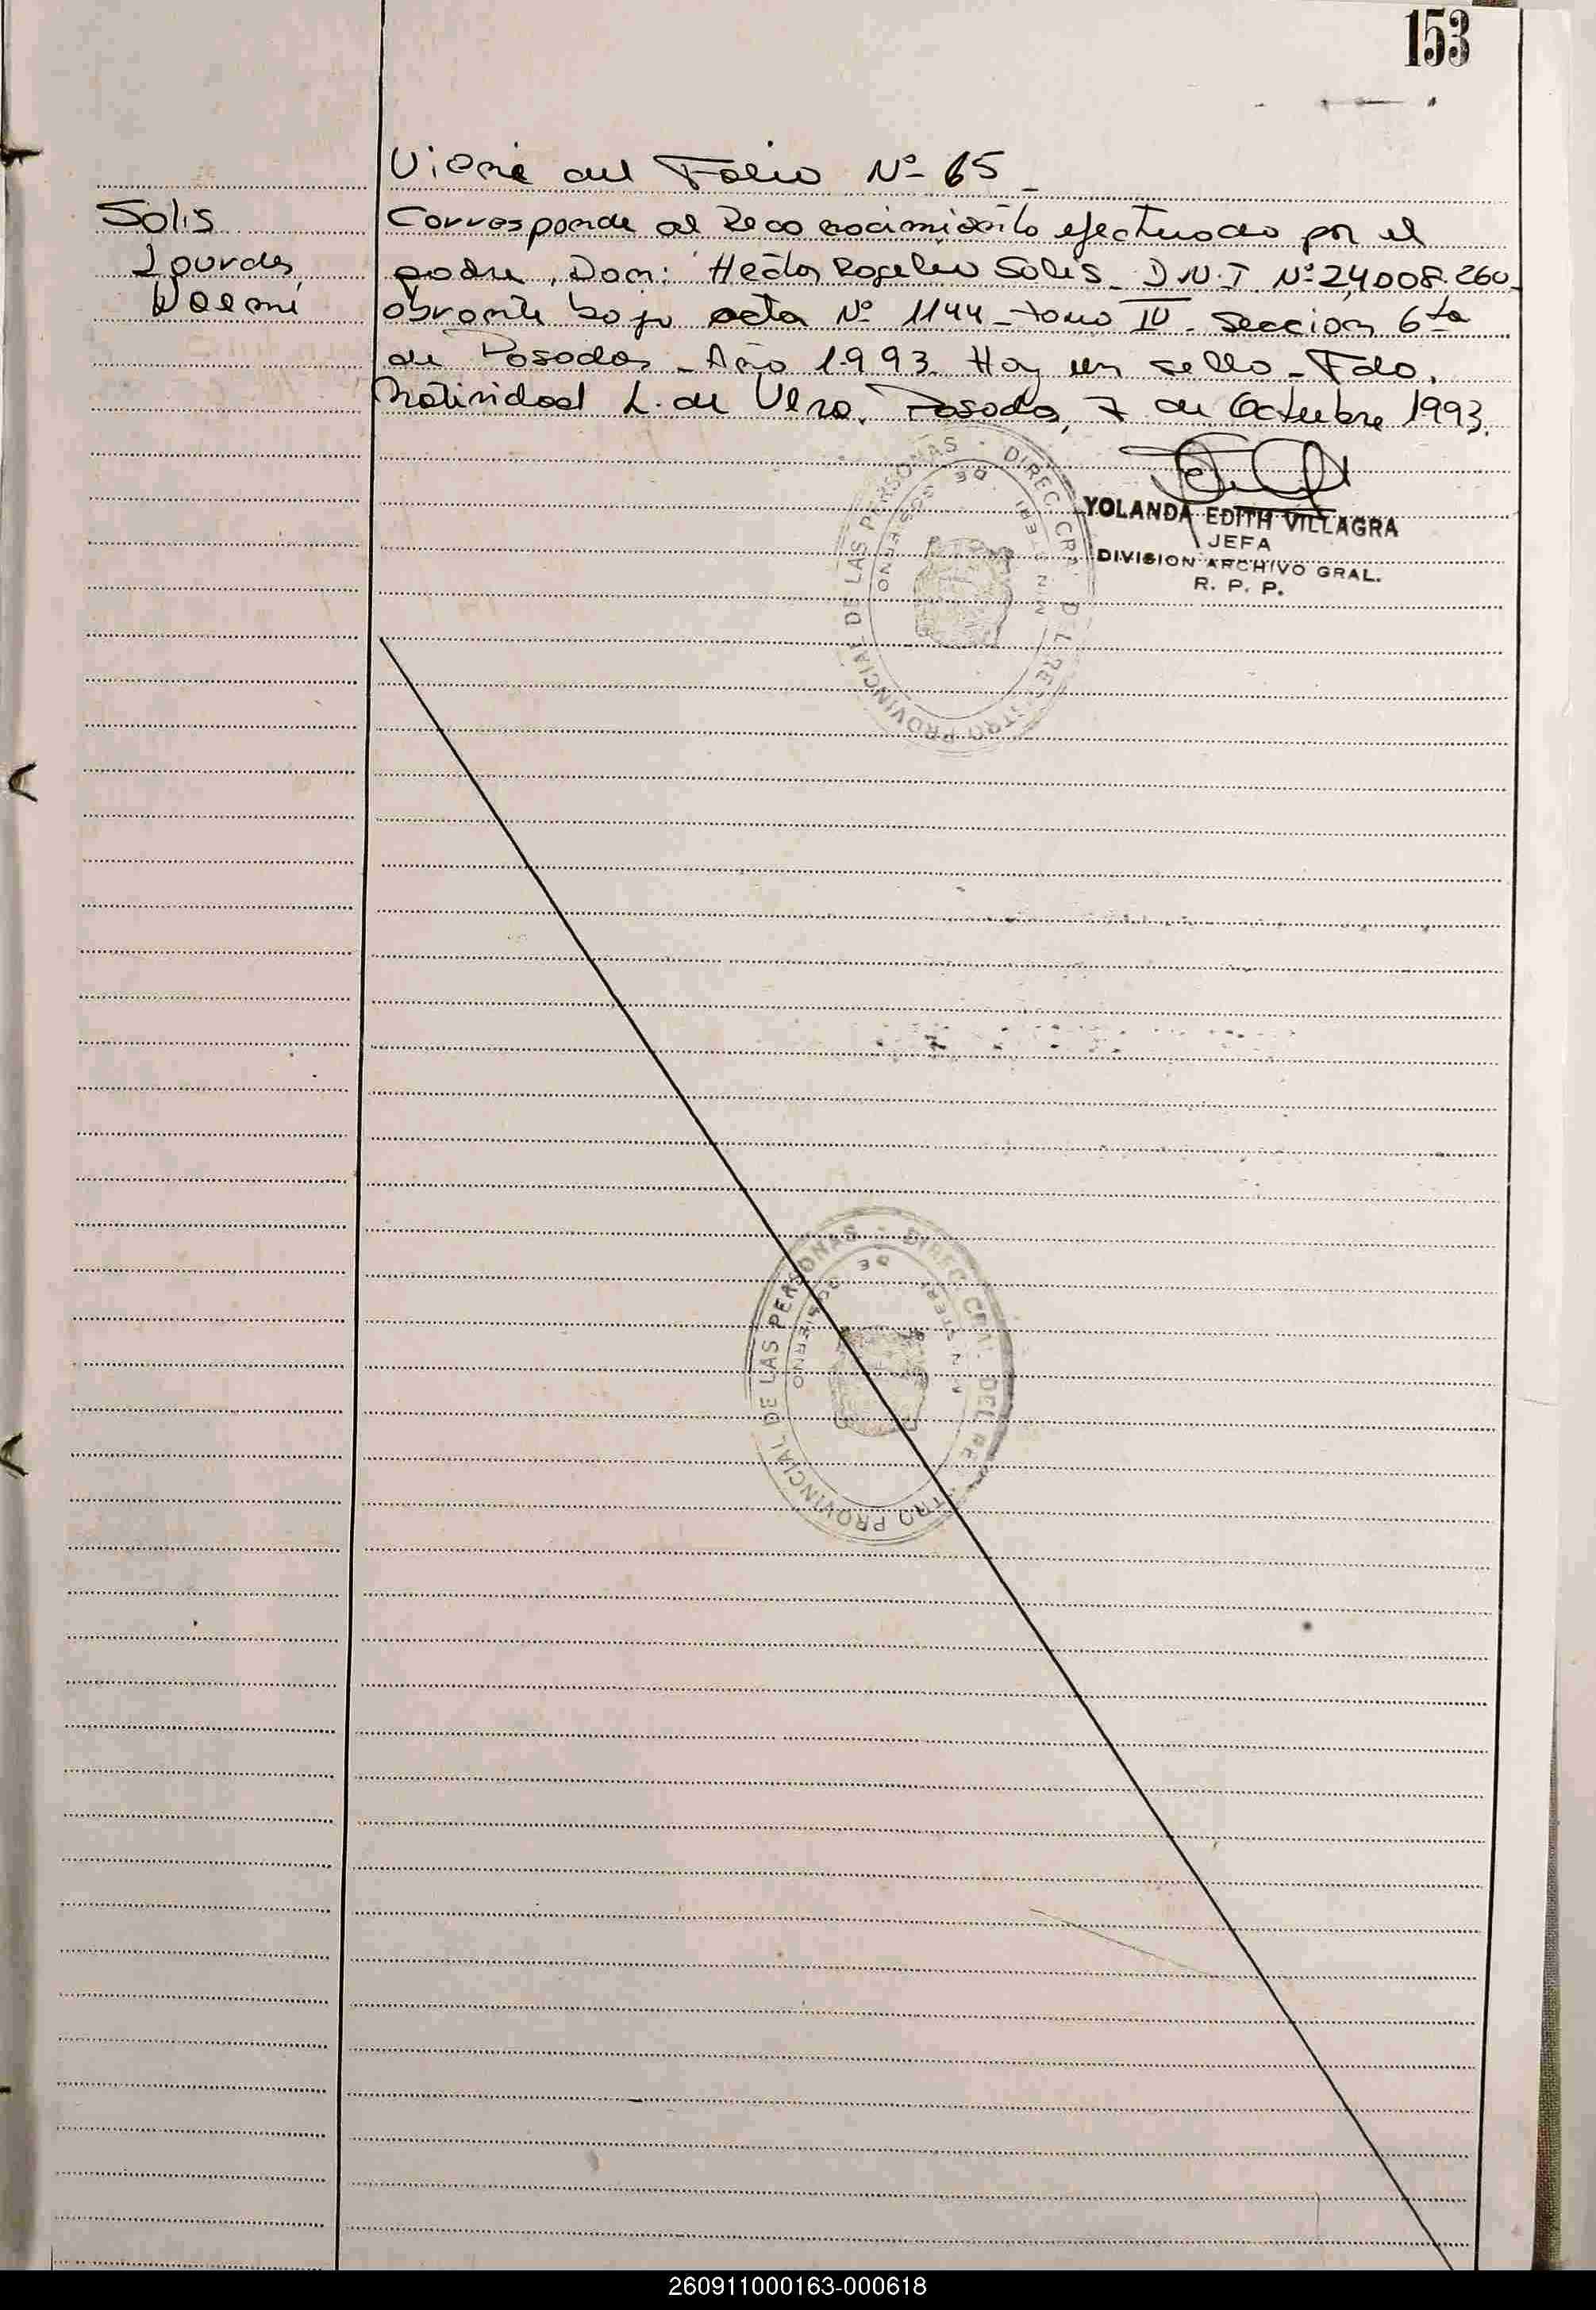 153
Viene del Folio Nº 65_
Solis
Lourdes
Noemi
Corresponde al Reconocimiento efectuado por el
padre, Don: Hector Rogelio Solis_ D.N.I Nº 24,008.260_
obrante bajo acta Nº 1144_ tomo IV. Seccion 6ta
de Posadas_ Año 1.993. Hay un sello_ Fdo.
Natividad L. de Vera. Posadas, 7 de Octubre 1993.
DIREC. GRAL. DEL REGISTRO PROVINCIAL DE LAS PERSONAS -
MINISTERIO DE GOBIERNO
YOLANDA EDITH VILLAGRA
JEFA
DIVISION ARCHIVO GRAL.
R. P. P.
DIREC. GRAL. DEL REGISTRO PROVINCIAL DE LAS PERSONAS -
MINISTERIO DE GOBIERNO
260911000163-000618